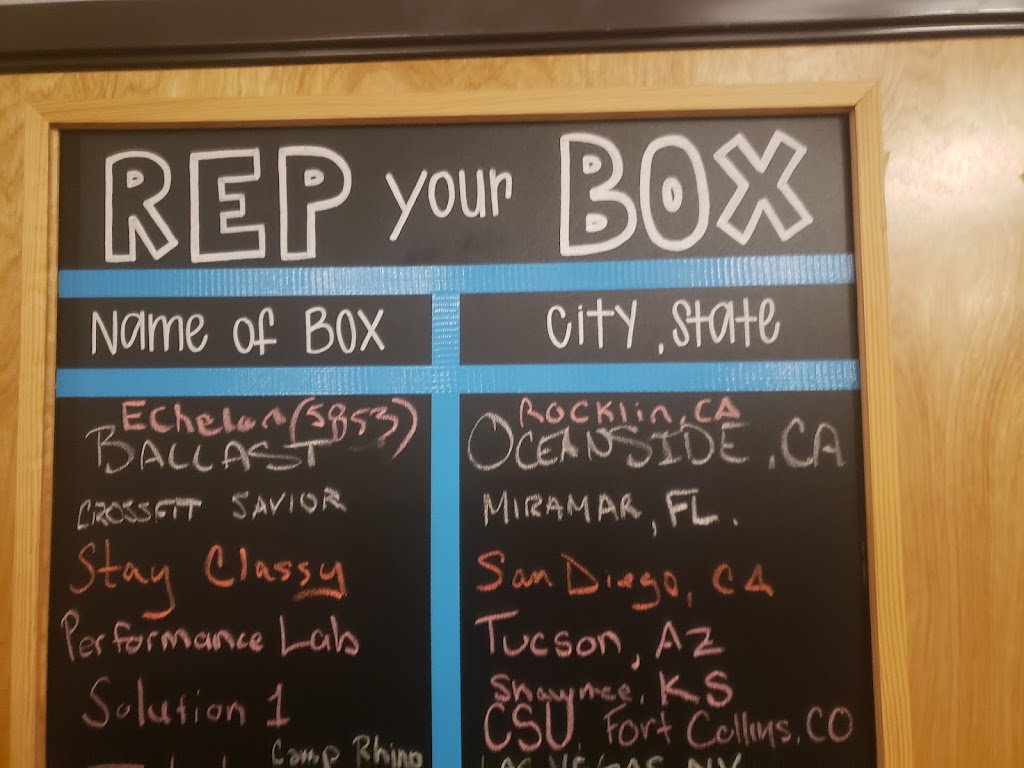 REP your BOX
Name of BOX City, State
Echelon (5853) Rocklin, CA
BALLAST OCEANSIDE, CA
CROSSFIT SAVIOR MIRAMAR, FL.
Stay Classy San Diego, CA
Performance Lab Tucson, AZ
Shawnee, KS
Solution 1 CSU Fort Collins, CO
Camp Rhino LAS VEGAS, NV